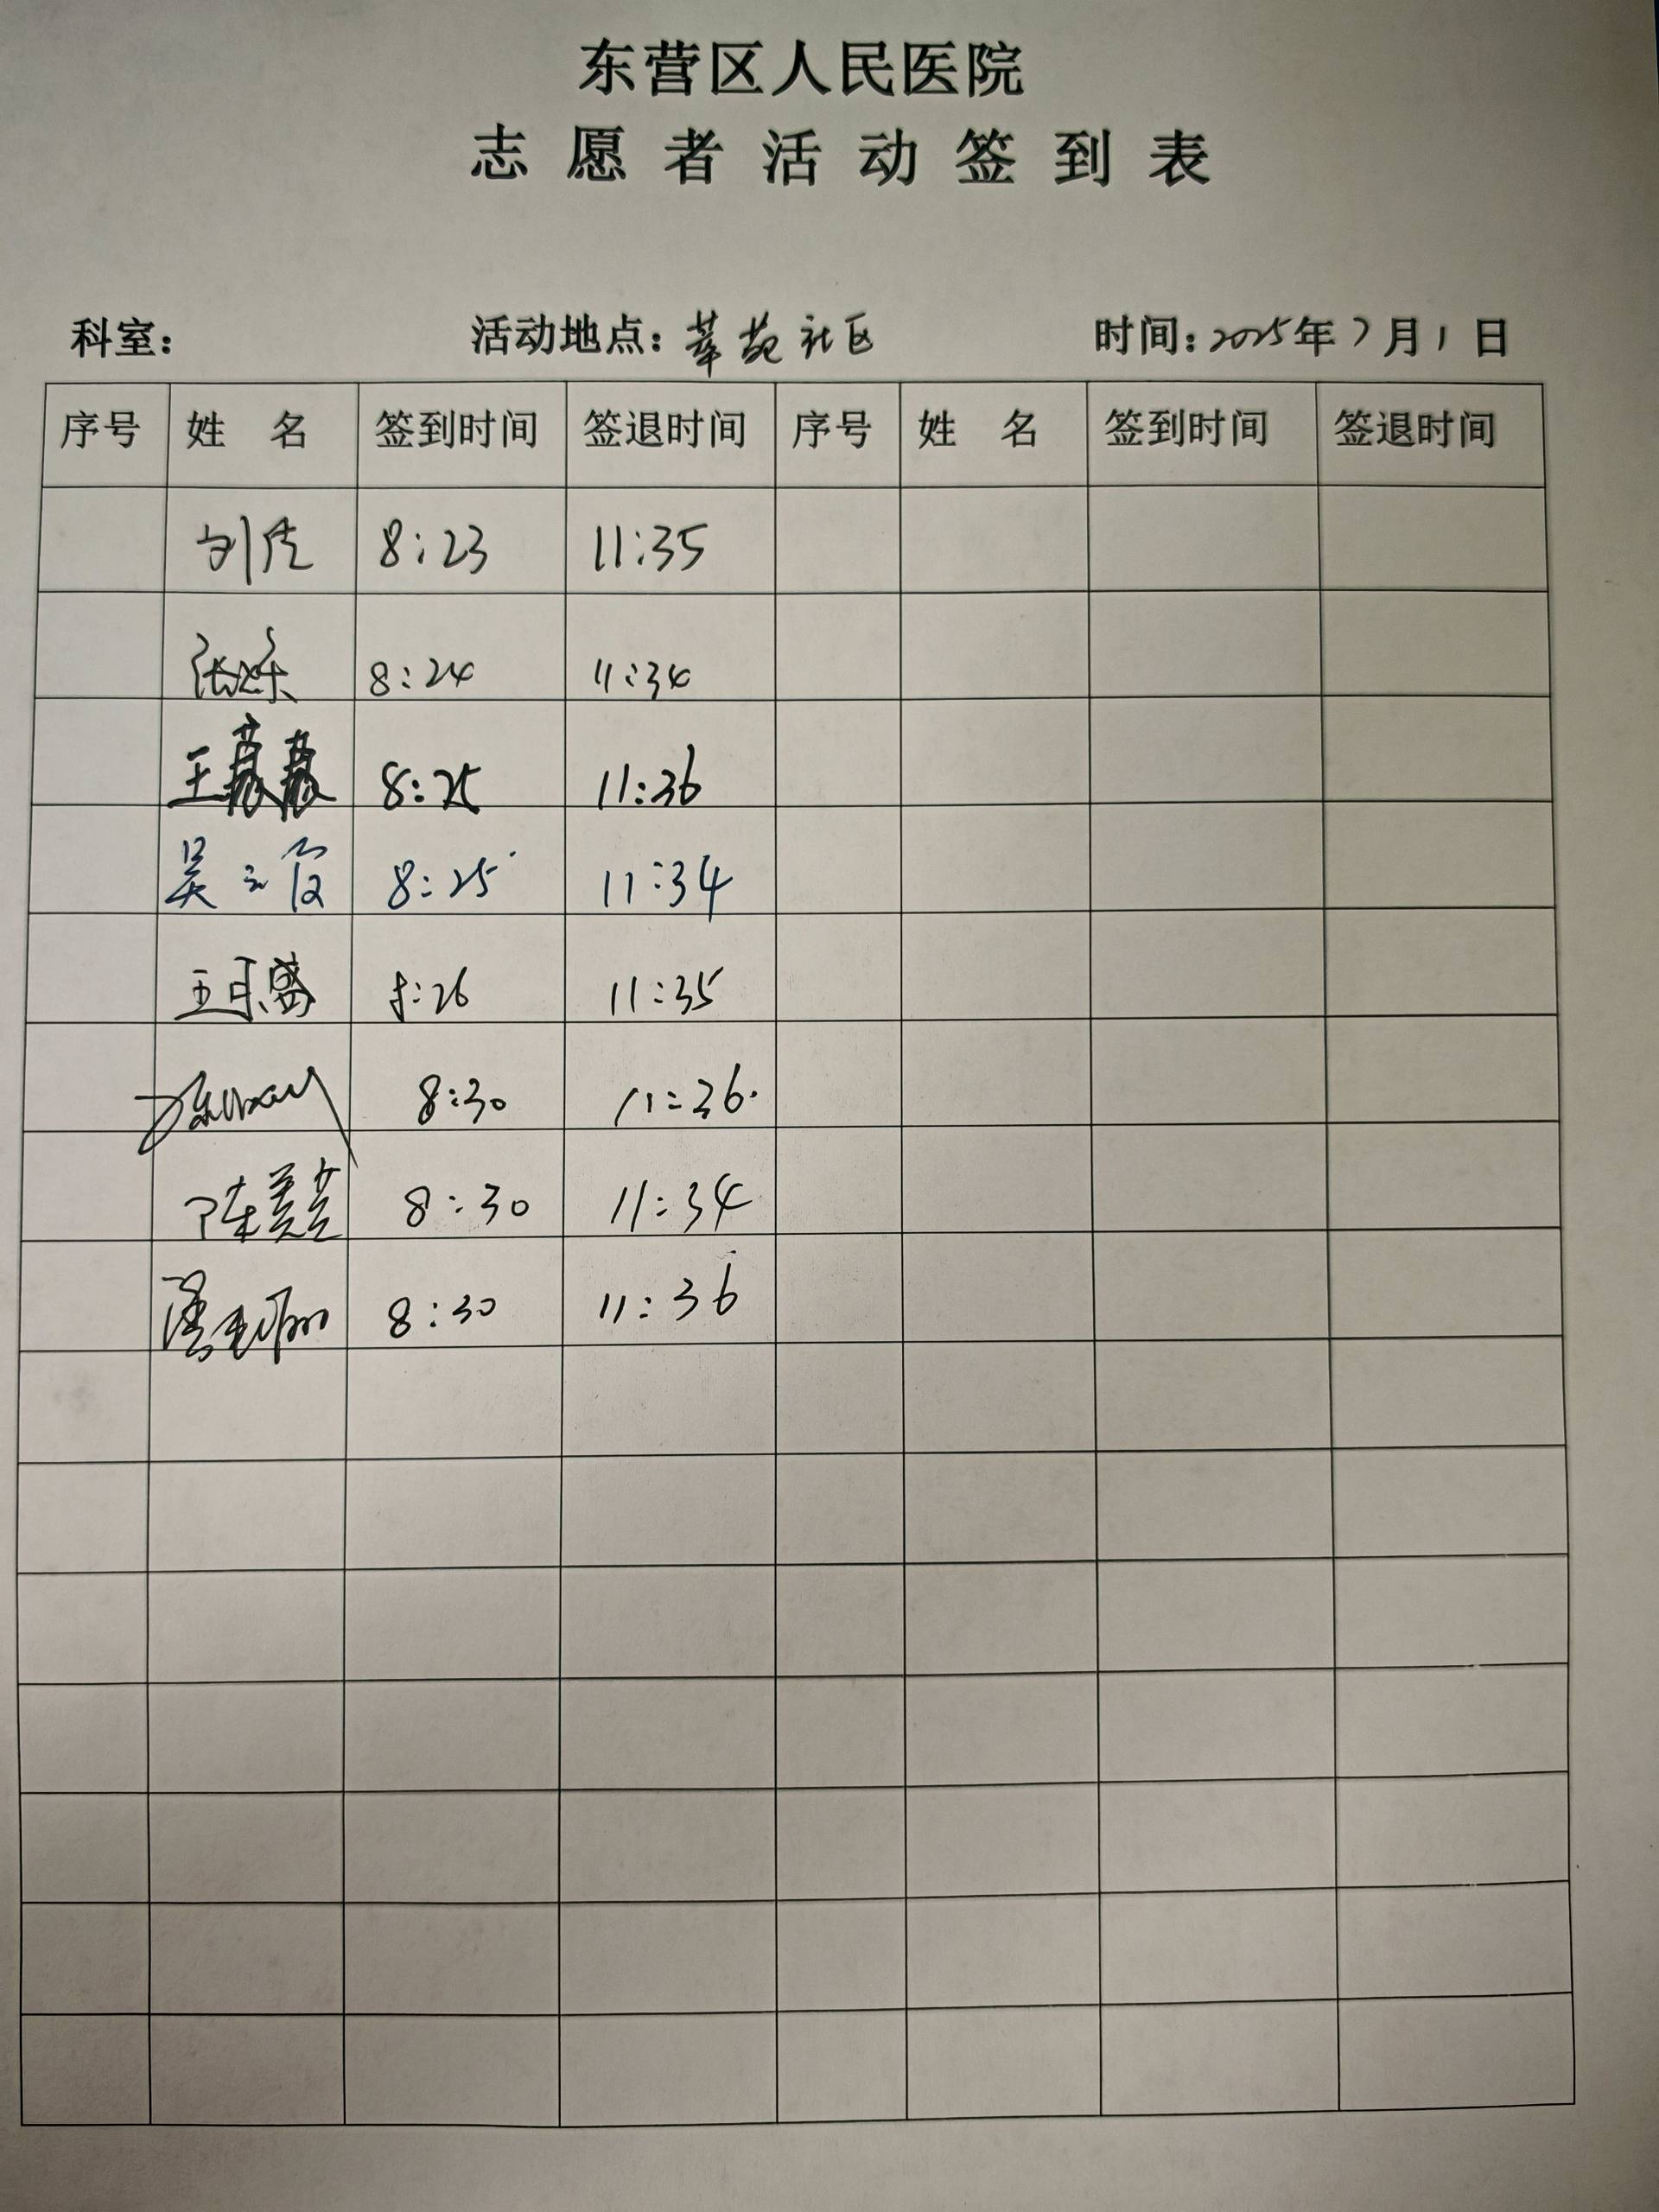 东营区人民医院
志愿者活动签到表
科室： 活动地点：莘苑社区 时间：2025年7月1日
序号 姓名 签到时间 签退时间 序号 姓名 签到时间 签退时间
刘 8:23 11:35
张 8:24 11:34
王 8:25 11:36
吴 8:25 11:34
王 8:26 11:35
陈 8:30 11:36
陈 8:30 11:34
8:30 11:36